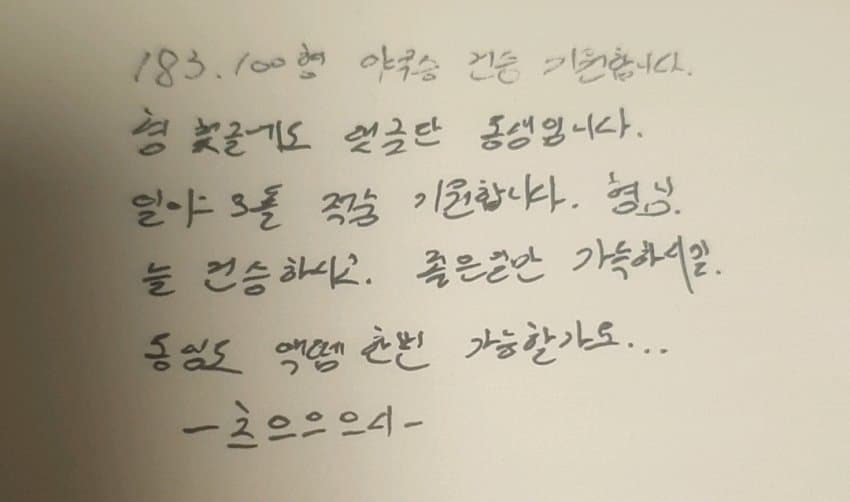 183.100형 야국승 건승 기원합니다.
형 회글기도 언금단 동생입니다.
일야 3폴 적중 기원합니다. 형님.
늘 건승하시고. 좋은일만 가득하시길.
동생도 액땜 한번 가능할가요...
-츠으으으시-